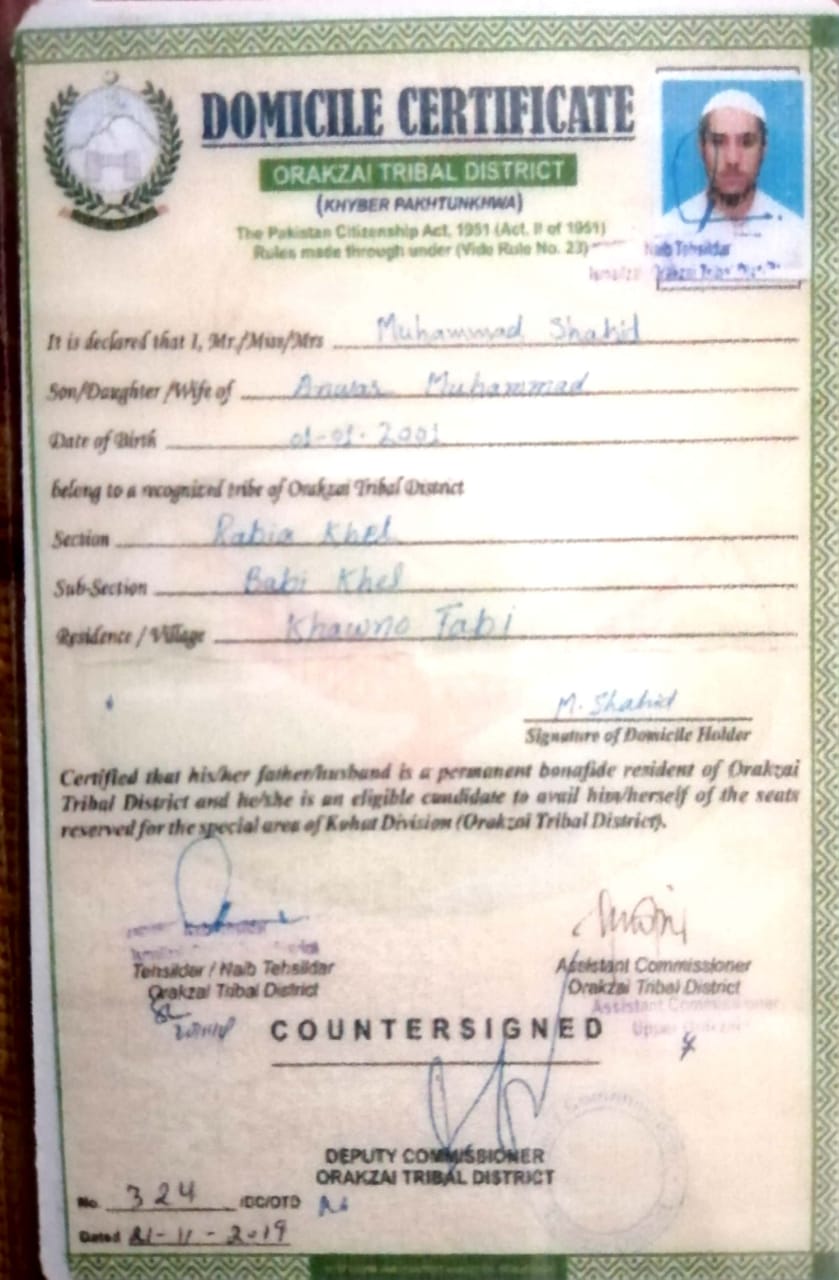 DOMICILE CERTIFICATE
ORAKZAI TRIBAL DISTRICT
(KHYBER PAKHTUNKHWA)
The Pakistan Citizenship Act, 1951 (Act. II of 1951)
Rules made through under (Vide Rule No. 23)
Naib Tehsildar
Orakzai
It is declared that I, Mr./Miss/Mrs Muhammad Shahid
Son/Daughter /Wife of Anwar Muhammad
Date of Birth 01-01-2001
belong to a recognized tribe of Orakzai Tribal District
Section Rabia Khel
Sub-Section Babi Khel
Residence / Village Khawno Tabi
M. Shahid
Signature of Domicile Holder
Certified that his/her father/husband is a permanent bonafide resident of Orakzai
Tribal District and he/she is an eligible candidate to avail him/herself of the seats
reserved for the special area of Kohat Division (Orakzai Tribal District).
Tehsilder / Naib Tehsildar
Orakzai Tribal District
Assistant Commissioner
Orakzai Tribal District
Assistant Commissioner
Upper Orakzai
COUNTERSIGNED
DEPUTY COMMISSIONER
ORAKZAI TRIBAL DISTRICT
No. 324 /DC/OTD
Dated 21-11-2019